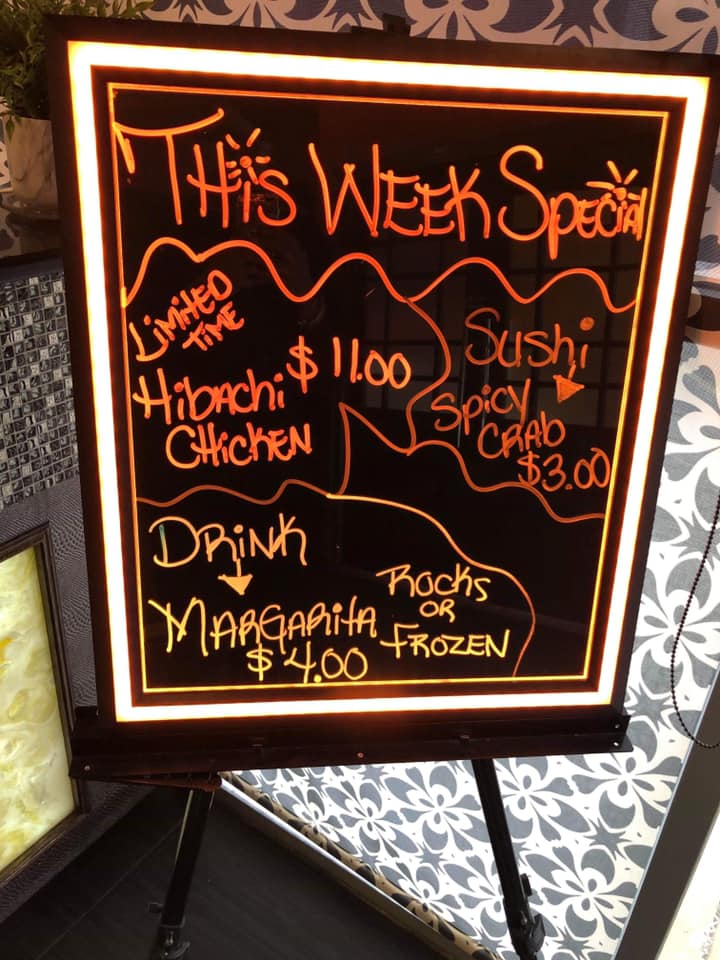 THis WEEK SpEciAl
LiMitED
TiME
HibAchi $ 11.00
CHickEN
Sushi
SpicY
CRAb
$3.00
DRiNK
MARGARitA
$ 4.00
ROCKS
OR
FROZEN